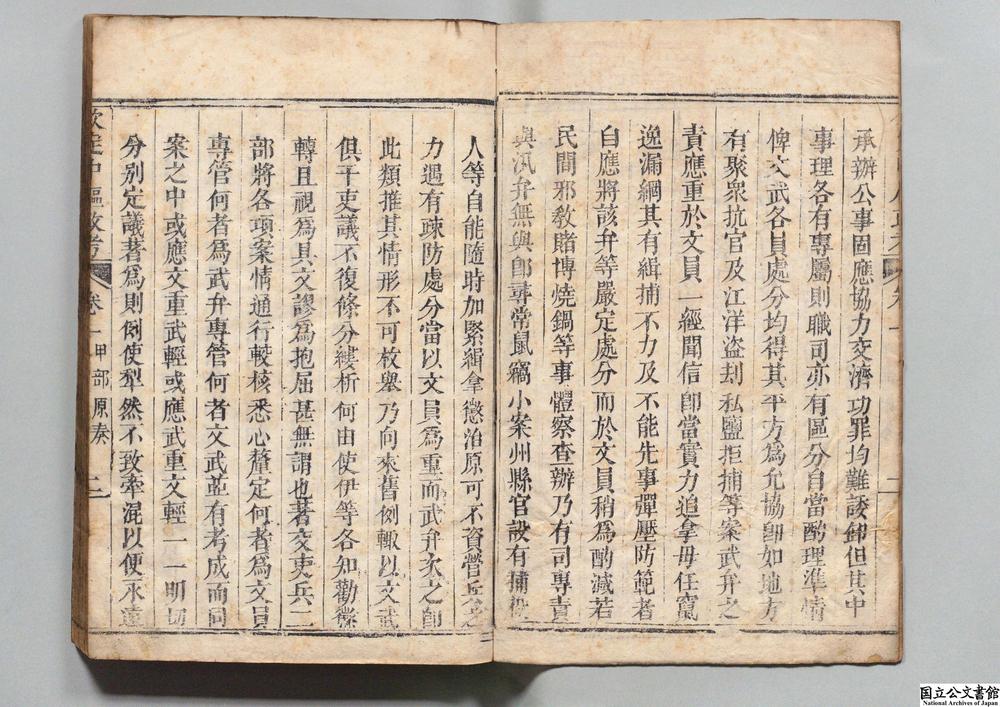 承辦公事固應協力交濟功罪均難諉卸但其中
事理各有專屬則職司亦有區分自當酌理準情
俾文武各員處分均得其平方為允協即如地方
有聚衆抗官及江洋盜刦私鹽拒捕等案武弁之
責應重於文員一經聞信即當實力追拿毋任竄
逸漏網其有緝捕不力及不能先事彈壓防範者
自應將該弁等嚴定處分而於文員稍為酌減若
民間邪教賭博燒鍋等事體察查辦乃有司專責
與汛弁無與即尋常鼠竊小案州縣官設有捕役
人等自能隨時加緊緝拿懲治原可不資營兵之
力遇有疎防處分當以文員為重而武弁次之即
此類推其情形不可枚舉乃向來舊例輒以文武
俱干吏議不復條分縷析何由使伊等各知勸懲
轉且視為具文謬為抱屈甚無謂也著交吏兵二
部將各項案情通行較核悉心釐定何者為文員
專管何者為武弁專管何者文武並有考成而同
案之中或應文重武輕或應武重文輕一一明切
分別定議著為則例使犁然不致牽混以便永遠
欽定中樞政考 卷一 甲部原奏 二
国立公文書館
National Archives of Japan